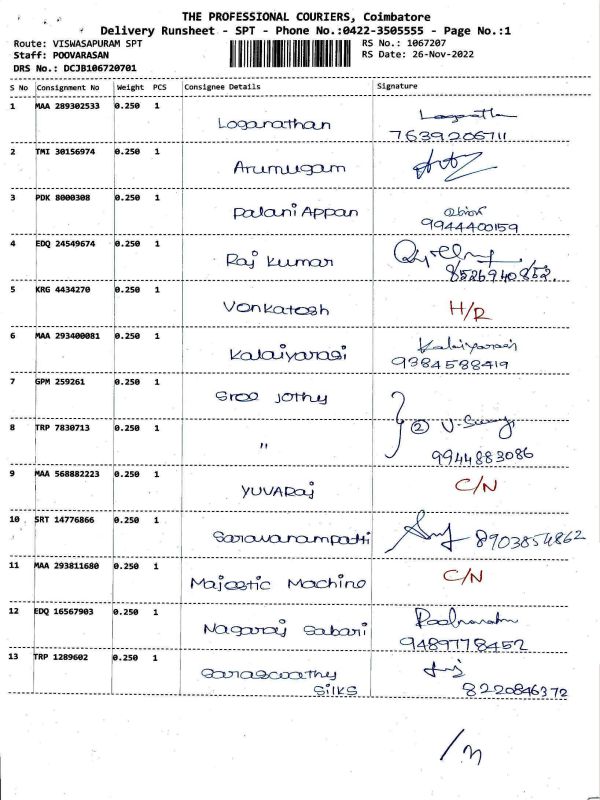 THE PROFESSIONAL COURIERS, Coimbatore
Delivery Runsheet - SPT - Phone No.:0422-3505555 - Page No.:1
Route: VISWASAPURAM SPT RS No.: 1067207
Staff: POOVARASAN RS Date: 26-Nov-2022
DRS No.: DCJB106720701
S No Consignment No Weight PCS Consignee Details Signature
1 MAA 289302533 0.250 1 Loganathan
7639206711
2 TMI 30156974 0.250 1 Arumugam
3 PDK 8000308 0.250 1 Palani Appan
9944400159
4 EDQ 24549674 0.250 1 Raj Kumar
8526940852
5 KRG 4434270 0.250 1 Venkatesh H/R
6 MAA 293400081 0.250 1 Kalaiyarasi Kalaiyarasi
9384588419
7 GPM 259261 0.250 1 Sree Jothy
8 TRP 7830713 0.250 1 " 2
9944883086
9 MAA 568882223 0.250 1 YUVARaj C/N
10 SRT 14776866 0.250 1 Saravanampatti 8903854862
11 MAA 293811680 0.250 1 Majestic Machine C/N
12 EDQ 16567903 0.250 1 Nagaraj Sabari
9489778452
13 TRP 1289602 0.250 1 Saraswathy
Silks 8220846372